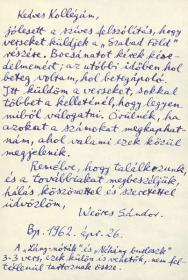 Kedves Kollégám,
jólesett a szives felszólitás, hogy
verseket küldjek a „Szabad Föld"
részére. Bocsánatot kérek kése-
delmemért; az utóbbi időben hol
beteg voltam, hol betegápoló.
Itt küldöm a verseket, sokkal
többet a kelleténél, hogy legyen
miből válogatni. Örülnék, ha
azokat a számokat megkaphat-
nám, ahol valami ezek közül
megjelenik.
Remélve, hogy találkozunk,
és a továbbiakat megbeszéljük,
hálás köszönettel és szeretettel
üdvözlöm,
Weöres Sándor.
Bp. 1962. ápr. 26.
A „Lány-nóták" és „Néhány
3-3 vers, ezek külön is vehetők, nem fel-
tétlenül tartoznak össze.